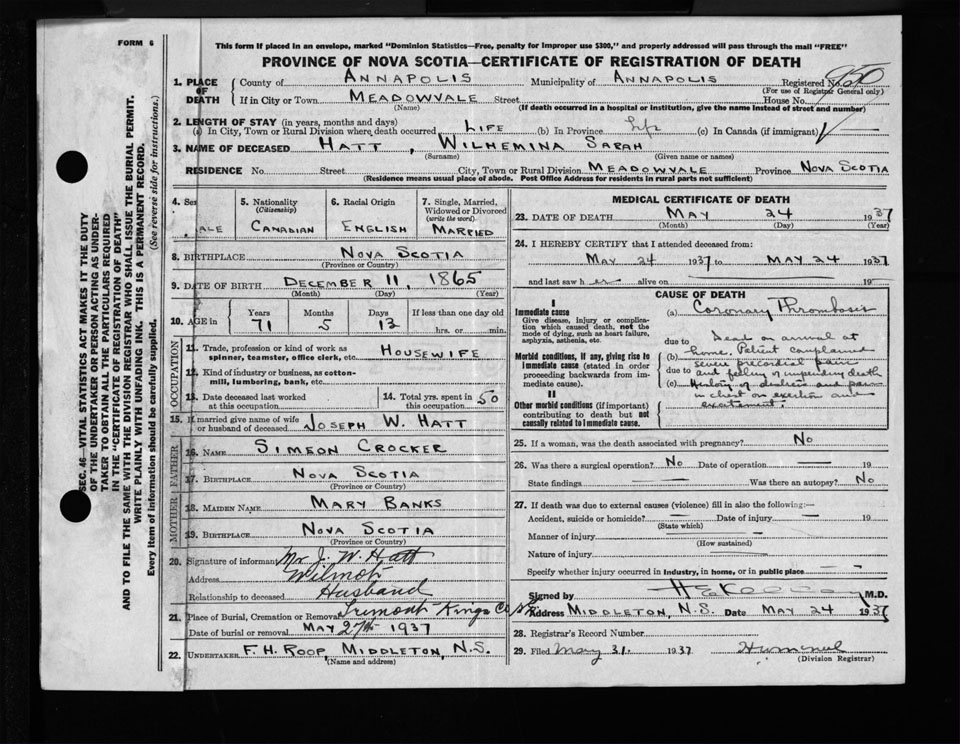 FORM 6
This form if placed in an envelope, marked "Dominion Statistics—Free, penalty for improper use $300," and properly addressed will pass through the mail "FREE"
PROVINCE OF NOVA SCOTIA—CERTIFICATE OF REGISTRATION OF DEATH
SEC. 46—VITAL STATISTICS ACT MAKES IT THE DUTY
OF THE UNDERTAKER OR PERSON ACTING AS UNDER-
TAKER TO OBTAIN ALL THE PARTICULARS REQUIRED
IN THE "CERTIFICATE OF REGISTRATION OF DEATH"
AND TO FILE THE SAME WITH THE DIVISION REGISTRAR WHO SHALL ISSUE THE BURIAL PERMIT.
WRITE PLAINLY WITH UNFADING INK. THIS IS A PERMANENT RECORD.
Every item of information should be carefully supplied. (See reverse side for instructions.)
1. PLACE OF DEATH
County of ANNAPOLIS Municipality of ANNAPOLIS Registered No.
(For use of Registrar General only)
If in City or Town MEADOWVALE Street House No.
(Name) (If death occurred in a hospital or institution, give the name instead of street and number)
2. LENGTH OF STAY (in years, months and days)
(a) In City, Town or Rural Division where death occurred LIFE (b) In Province Life (c) In Canada (if immigrant)
3. NAME OF DECEASED HATT, WILHEMINA SARAH
(Surname) (Given name or names)
RESIDENCE No. Street City, Town or Rural Division MEADOWVALE Province NOVA SCOTIA
(Residence means usual place of abode. Post Office Address for residents in rural parts not sufficient)
4. Sex 5. Nationality (Citizenship) 6. Racial Origin 7. Single, Married, Widowed or Divorced (write the word)
ALE CANADIAN ENGLISH MARRIED
8. BIRTHPLACE NOVA SCOTIA
(Province or Country)
9. DATE OF BIRTH DECEMBER 11, 1865
(Month) (Day) (Year)
10. AGE in Years Months Days If less than one day old
71 5 13 hrs. or min.
OCCUPATION
11. Trade, profession or kind of work as spinner, teamster, office clerk, etc. HOUSEWIFE
12. Kind of industry or business, as cotton-mill, lumbering, bank, etc.
13. Date deceased last worked at this occupation 14. Total yrs. spent in this occupation 50
15. If married give name of wife or husband of deceased JOSEPH W. HATT
FATHER
16. NAME SIMEON CROCKER
17. BIRTHPLACE NOVA SCOTIA
(Province or Country)
MOTHER
18. MAIDEN NAME MARY BANKS
19. BIRTHPLACE NOVA SCOTIA
(Province or Country)
20. Signature of informant Mr J. W. Hatt
Address Wilmot
Relationship to deceased Husband
21. Place of Burial, Cremation or Removal Tremont Kings Co N.S.
Date of burial or removal MAY 27th 1937
22. UNDERTAKER F. H. ROOP, MIDDLETON, N.S.
(Name and address)
MEDICAL CERTIFICATE OF DEATH
23. DATE OF DEATH MAY 24 1937
(Month) (Day) (Year)
24. I HEREBY CERTIFY that I attended deceased from:
MAY 24 1937 to MAY 24 1937
and last saw her alive on 19
CAUSE OF DEATH
I
Immediate cause
Give disease, injury or complication which caused death, not the mode of dying, such as heart failure, asphyxia, asthenia, etc.
(a) Coronary Thrombosis
due to
Morbid conditions, if any, giving rise to immediate cause (stated in order proceeding backwards from immediate cause).
Dead on arrival at
(b) home. Patient complained
severe precordial pain
due to and feeling of impending death
(c) History of distress and pain
in chest on exertion and
excitement.
II
Other morbid conditions (if important) contributing to death but not causally related to immediate cause.
25. If a woman, was the death associated with pregnancy? NO
26. Was there a surgical operation? NO Date of operation 19
State findings Was there an autopsy? NO
27. If death was due to external causes (violence) fill in also the following:—
Accident, suicide or homicide? Date of injury 19
(State which)
Manner of injury
(How sustained)
Nature of injury
Specify whether injury occurred in industry, in home, or in public place
Signed by M.D.
Address MIDDLETON, N.S. Date MAY 24 1937
28. Registrar's Record Number
29. Filed May 31. 1937
(Division Registrar)